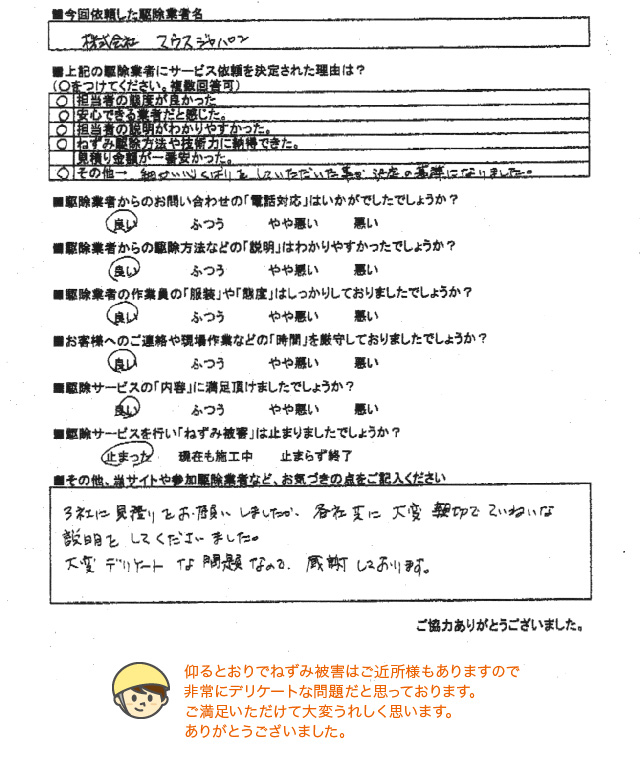 ■今回依頼した駆除業者名
株式会社 マウスジャパン
■上記の駆除業者にサービス依頼を決定された理由は？
（○をつけてください。複数回答可）
○ 担当者の態度が良かった
○ 安心できる業者だと感じた。
○ 担当者の説明がわかりやすかった。
○ ねずみ駆除方法や技術力に納得できた。
見積り金額が一番安かった。
○ その他→ 細かい心くばりをしていただいた事が決定の基準になりました。
■駆除業者からのお問い合わせの「電話対応」はいかがでしたでしょうか？
良い ふつう やや悪い 悪い
■駆除業者からの駆除方法などの「説明」はわかりやすかったでしょうか？
良い ふつう やや悪い 悪い
■駆除業者の作業員の「服装」や「態度」はしっかりしておりましたでしょうか？
良い ふつう やや悪い 悪い
■お客様へのご連絡や現場作業などの「時間」を厳守しておりましたでしょうか？
良い ふつう やや悪い 悪い
■駆除サービスの「内容」に満足頂けましたでしょうか？
良い ふつう やや悪い 悪い
■駆除サービスを行い「ねずみ被害」は止まりましたでしょうか？
止まった 現在も施工中 止まらず終了
■その他、当サイトや参加駆除業者など、お気づきの点をご記入ください
3社に見積りをお願いしましたが、各社共に大変親切でていねいな
説明をしてくださいました。
大変デリケートな問題なので、感謝しております。
ご協力ありがとうございました。
仰るとおりでねずみ被害はご近所様もありますので
非常にデリケートな問題だと思っております。
ご満足いただけて大変うれしく思います。
ありがとうございました。